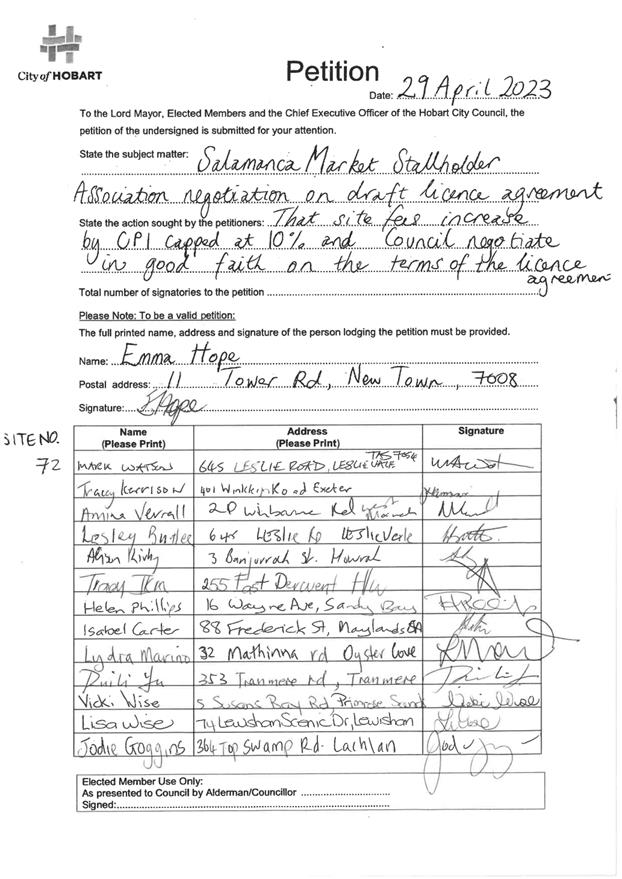 City of HOBART
Petition
Date: 29 April 2023
To the Lord Mayor, Elected Members and the Chief Executive Officer of the Hobart City Council, the
petition of the undersigned is submitted for your attention.
State the subject matter: Salamanca Market Stallholder
Association negotiation on draft licence agreement
State the action sought by the petitioners: That site fees increase
by CPI capped at 10% and Council negotiate
in good faith on the terms of the licence
agreement
Total number of signatories to the petition
Please Note: To be a valid petition:
The full printed name, address and signature of the person lodging the petition must be provided.
Name: Emma Hope
Postal address: 11 Tower Rd, New Town, 7008
Signature: E Hope
Name Address Signature
(Please Print) (Please Print)
SITE NO.
72 MARK WATSON 645 LESLIE ROAD, LESLIE VALE TAS 7054
Tracy Kerrison 401 Road Exeter
Amina Verrall 2D Rd west
Lesley 645 LESLIE Rd LESLIE Vale
Alison Kirby 3 St. Howrah
Tracy 255 East Derwent H/W
Helen Phillips 16 Wayne Ave, Sandy Bay
Isabel Carter 88 Frederick St, Maylands SA
Lydra Marino 32 Mathinna rd Oyster Cove
Yu 353 Tranmere rd, Tranmere
Vicki Wise 5 Susans Bay Rd, Primrose Sands
Lisa Wise 74 Lewisham Scenic Dr, Lewisham
Jodie Goggins 364 Top Swamp Rd. Lachlan
Elected Member Use Only:
As presented to Council by Alderman/Councillor
Signed: